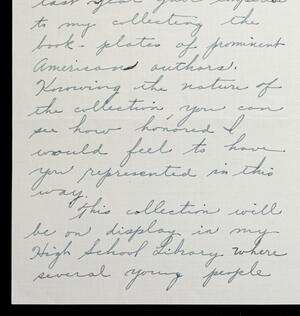 last year gave impetus
to my collecting the
book-plates of prominent
American authors.
Knowing the nature of
the collection, you can
see how honored I
would feel to have
you represented in this
way.
This collection will
be on display in my
High School Library where
several young people